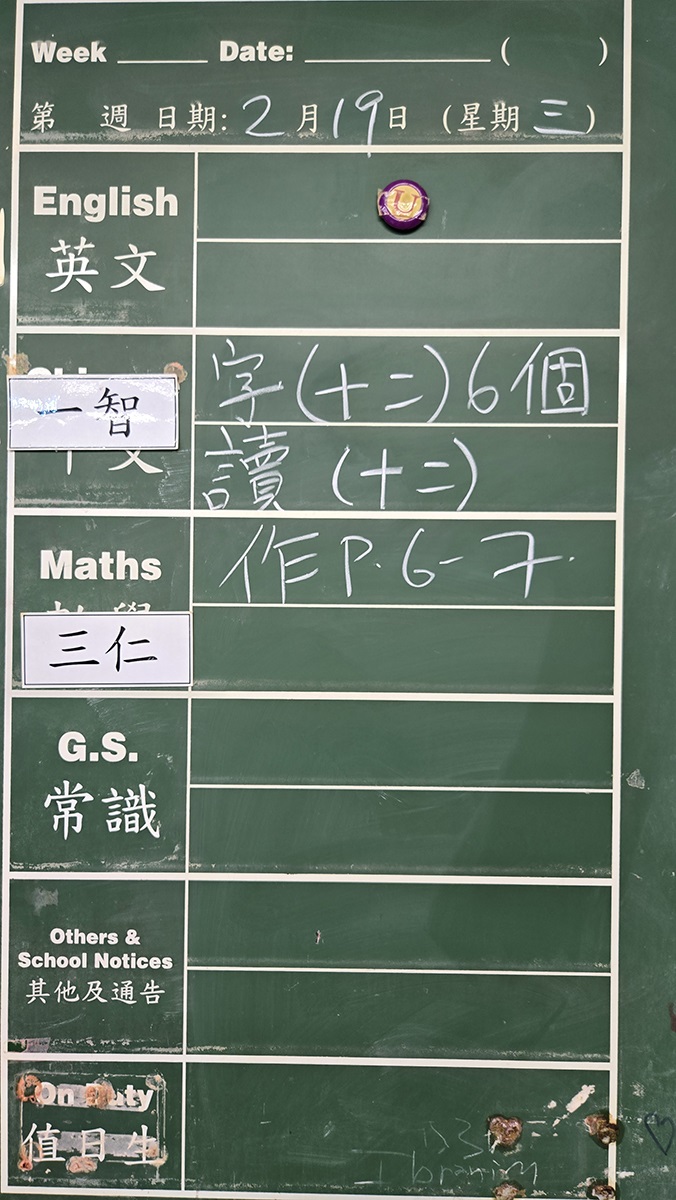 Week ______ Date: ____________ ( )
第 週 日期: 2月19日 (星期三)
English
英文
U
字(十二)6個
一智
讀(十二)
Maths
作P.6-7.
三仁
G.S.
常識
Others &
School Notices
其他及通告
On Duty
值日生